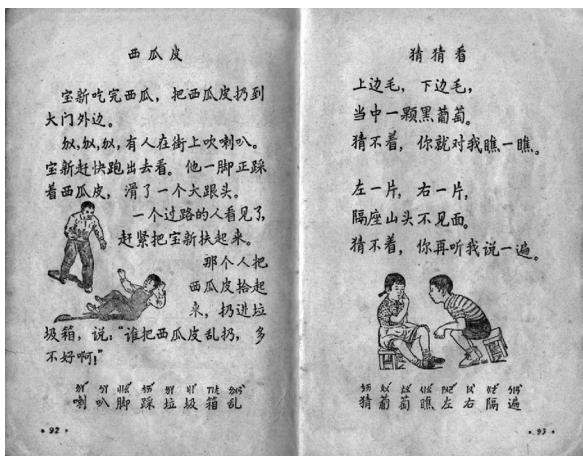 西瓜皮
宝新吃完西瓜，把西瓜皮扔到
大门外边。
有人在街上吹喇叭。
宝新赶快跑出去看。他一脚正踩
着西瓜皮，滑了一个大跟头。
一个过路的人看见了，
赶紧把宝新扶起来。
那个人把
西瓜皮拾起
来，扔进垃
圾箱，说：“谁把西瓜皮乱扔，多
不好啊！”
喇 叭 脚 踩 垃 圾 箱 乱
·92·
猜猜看
上边毛，下边毛，
当中一颗黑葡萄。
猜不着，你就对我瞧一瞧。
左一片，右一片，
隔座山头不见面。
猜不着，你再听我说一遍。
猜 葡 萄 瞧 左 右 隔 遍
·93·